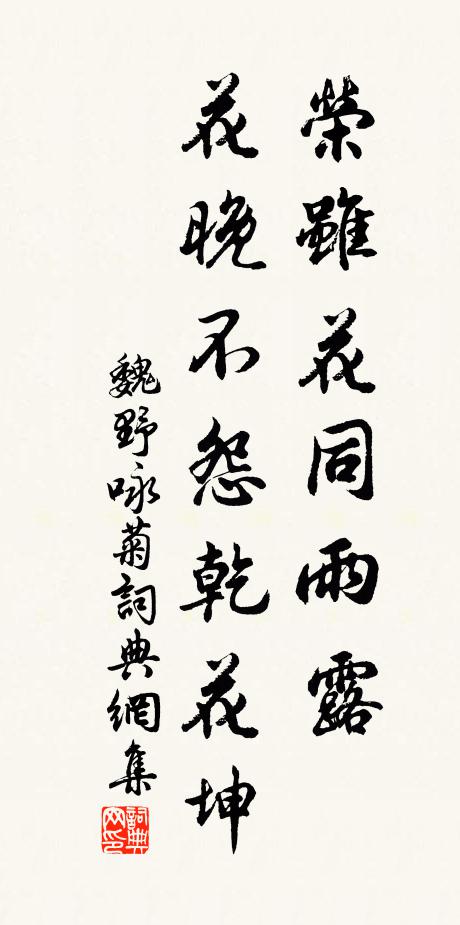 榮雖花同雨露
花晚不怨乾花坤
魏野咏菊詞典網集
詞典網印